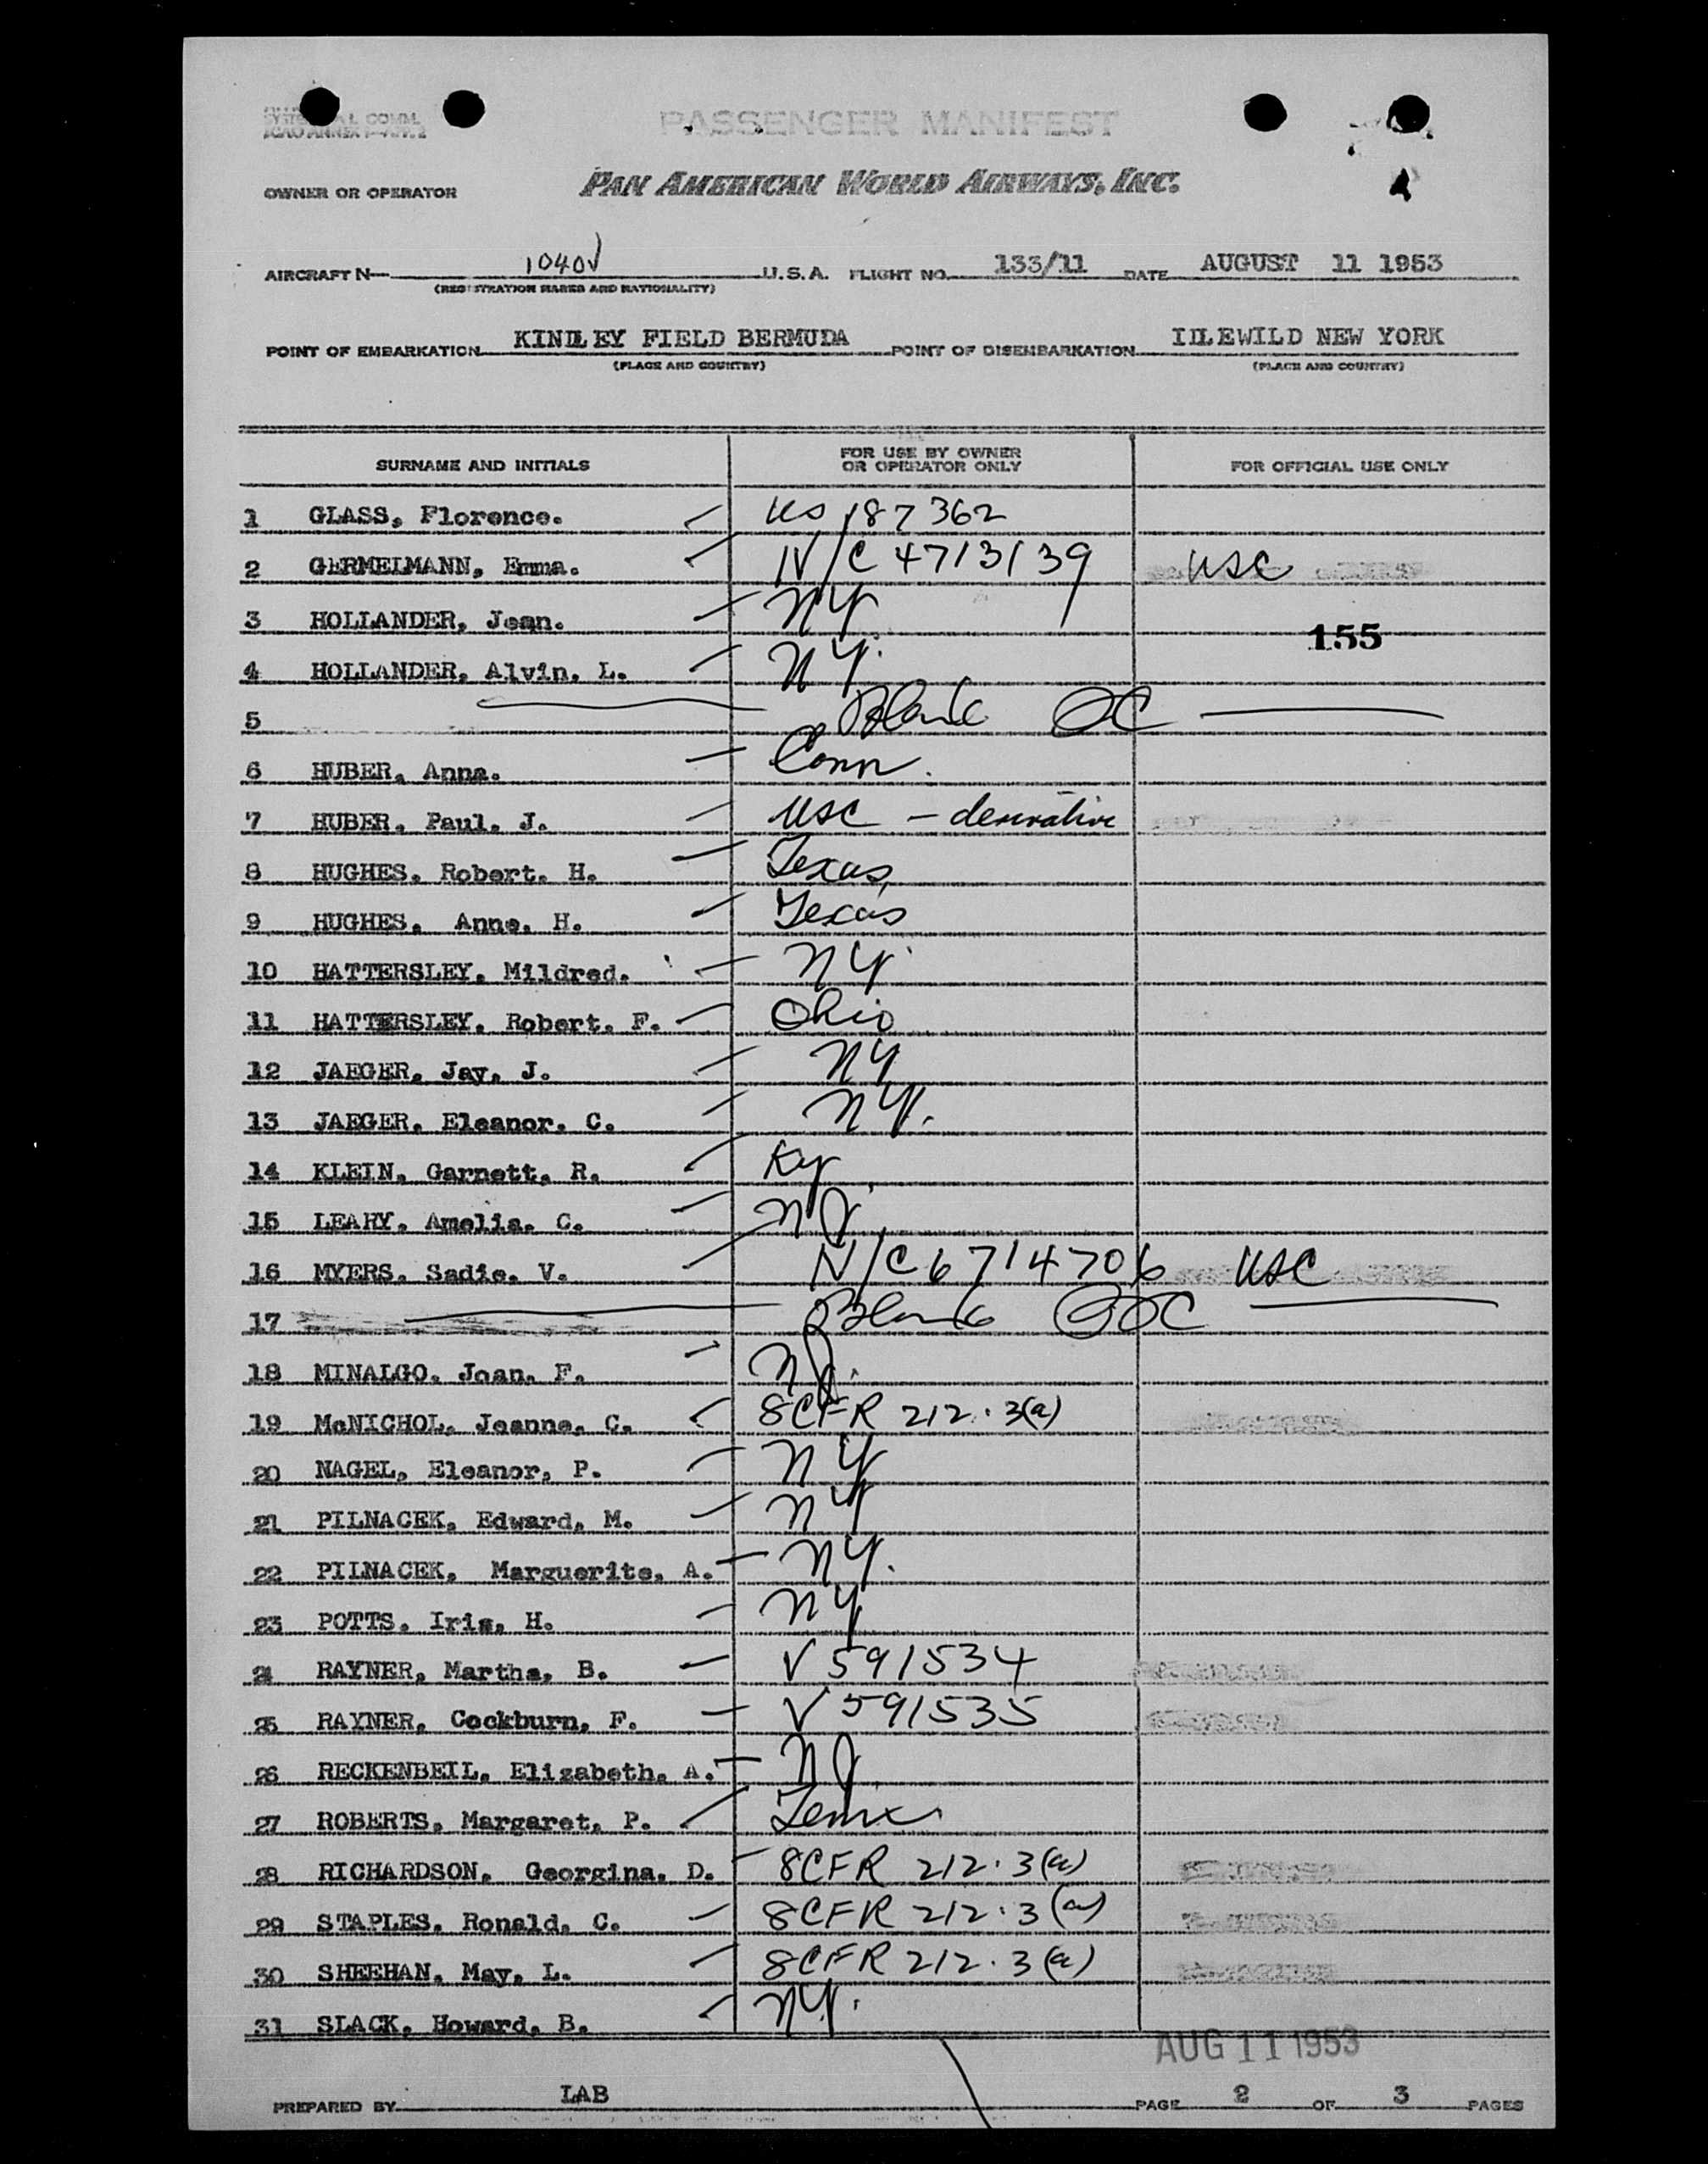 PASSENGER MANIFEST
OWNER OR OPERATOR PAN AMERICAN WORLD AIRWAYS, INC.
AIRCRAFT N— 1040V U.S.A. FLIGHT NO. 133/11 DATE AUGUST 11 1953
(REGISTRATION MARKS AND NATIONALITY)
POINT OF EMBARKATION KINDLEY FIELD BERMUDA POINT OF DISEMBARKATION IDLEWILD NEW YORK
(PLACE AND COUNTRY) (PLACE AND COUNTRY)
SURNAME AND INITIALS FOR USE BY OWNER OR OPERATOR ONLY FOR OFFICIAL USE ONLY
1 GLASS, Florence. US 187362
2 GERMELMANN, Emma. N/C 4713139 USC
3 HOLLANDER, Jean. NY
155
4 HOLLANDER, Alvin. L. NY.
5 Blank
6 HUBER, Anna. Conn.
7 HUBER, Paul. J. USC - derivative
8 HUGHES, Robert. H. Texas
9 HUGHES, Anne. H. Texas
10 HATTERSLEY, Mildred. NY
11 HATTERSLEY, Robert. F. Ohio
12 JAEGER, Jay. J. NY
13 JAEGER, Eleanor. C. NY.
14 KLEIN, Garnett. R. Ky
15 LEAHY, Amelia. C. NJ
16 MYERS, Sadie. V. N/C 6714706 USC
17 Blank
18 MINALGO, Joan. F. NJ.
19 McNICHOL, Jeanne. C. 8CFR 212.3(a)
20 NAGEL, Eleanor, P. NY
21 PILNACEK, Edward, M. NY
22 PILNACEK, Marguerite, A. NY.
23 POTTS, Iris, H. NY
24 RAYNER, Martha, B. V 591534
25 RAYNER, Cockburn, F. V 591535
26 RECKENBEIL, Elizabeth, A. NJ
27 ROBERTS, Margaret, P.
28 RICHARDSON, Georgina, D. 8CFR 212.3(a)
29 STAPLES, Ronald, C. 8CFR 212.3(a)
30 SHEEHAN, May, L. 8CFR 212.3(a)
31 SLACK, Howard, B. NY.
AUG 11 1953
PREPARED BY LAB PAGE 2 OF 3 PAGES